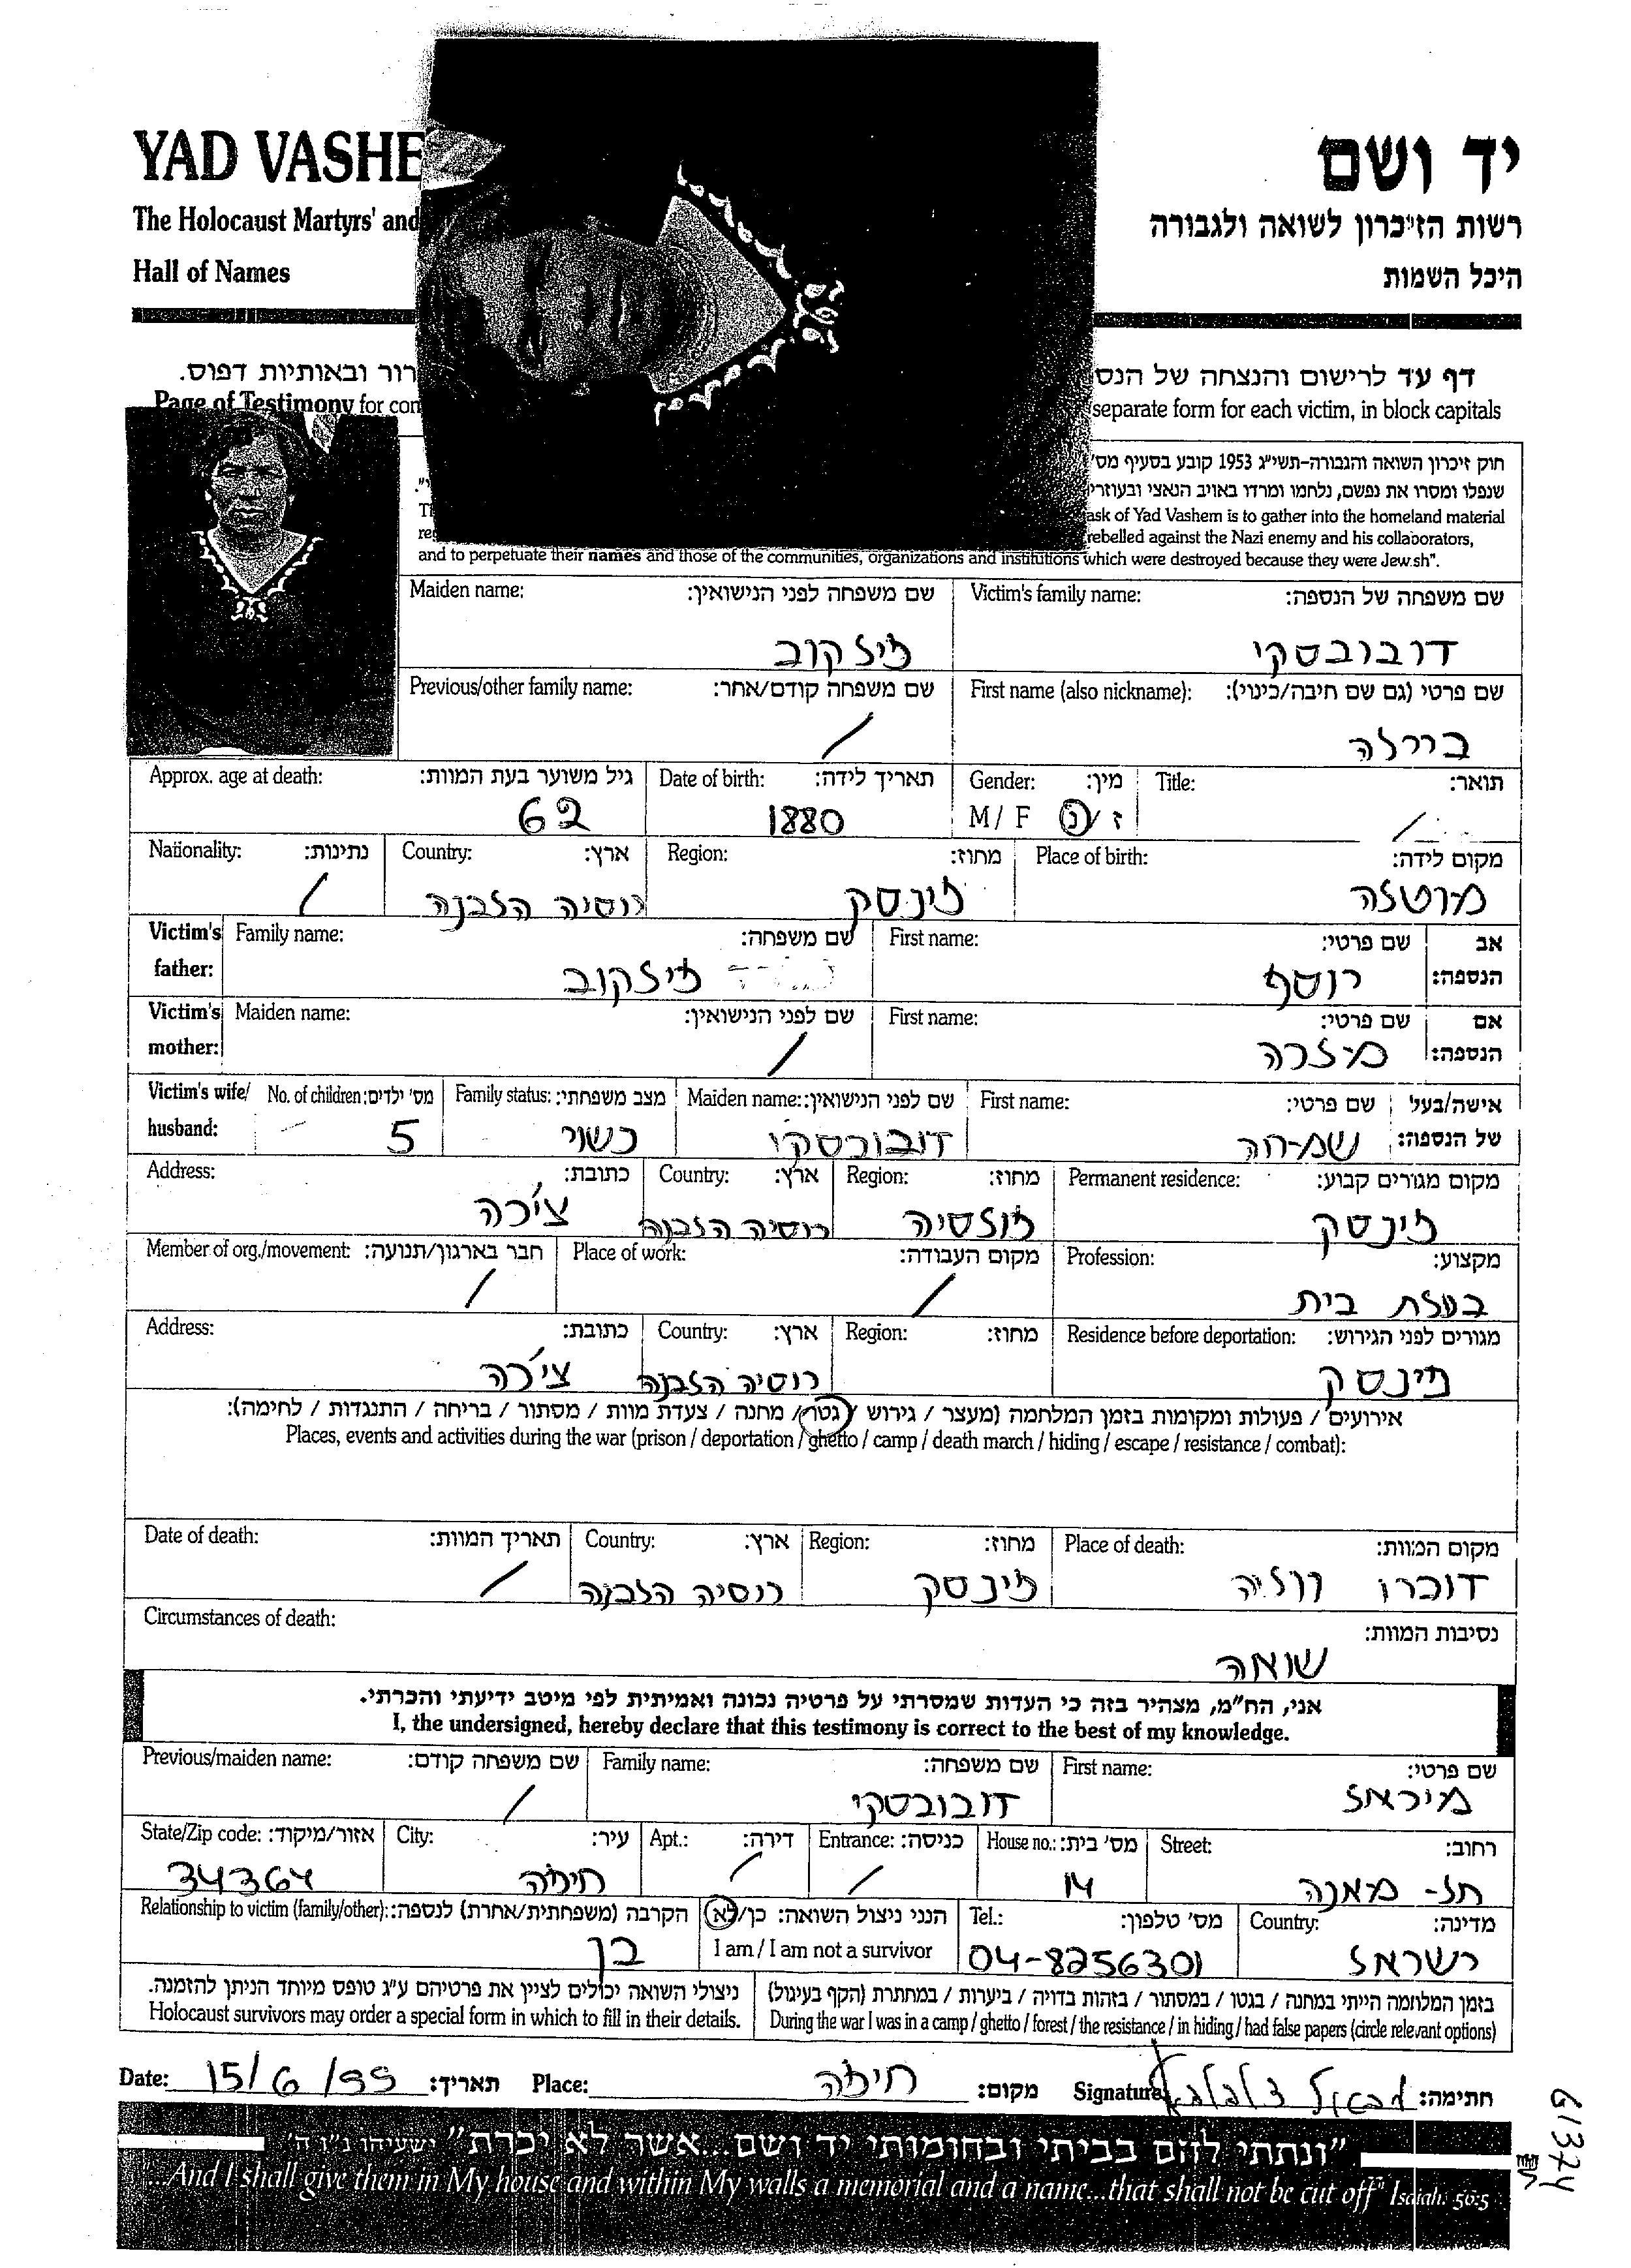 YAD VASHE
יד ושם
The Holocaust Martyrs' and
רשות הזיכרון לשואה ולגבורה
Hall of Names
היכל השמות
דף עד לרישום והנצחה של הנס
רור ובאותיות דפוס.
Page of Testimony for con
separate form for each victim, in block capitals
חוק זיכרון השואה והגבורה-תשי"ג 1953 קובע בסעיף מס'
שנפלו ומסרו את נפשם, נלחמו ומרדו באויב הנאצי ובעוזרי
ask of Yad Vashem is to gather into the homeland material
rebelled against the Nazi enemy and his collaborators,
and to perpetuate their names and those of the communities, organizations and institutions which were destroyed because they were Jewish".
Maiden name: שם משפחה לפני הנישואין: Victim's family name: שם משפחה של הנספה:
דובובסקי
Previous/other family name: שם משפחה קודם/אחר: First name (also nickname): שם פרטי (גם שם חיבה/כינוי):
/ ביילה
Approx. age at death: גיל משוער בעת המוות: Date of birth: תאריך לידה: Gender: מין: Title: תואר:
62 1880 M/ F ז / נ /
Nationality: נתינות: Country: ארץ: Region: מחוז: Place of birth: מקום לידה:
/ רוסיה הלבנה פינסק מוטלה
Victim's father: Family name: שם משפחה: First name: שם פרטי: אב הנספה:
יוסף
Victim's mother: Maiden name: שם לפני הנישואין: First name: שם פרטי: אם הנספה:
/ מלכה
Victim's wife/ husband: No. of children: מס' ילדים: Family status: מצב משפחתי: Maiden name: שם לפני הנישואין: First name: שם פרטי: אישה/בעל של הנספה:
5 נשוי דובובסקי שמחה
Address: כתובת: Country: ארץ: Region: מחוז: Permanent residence: מקום מגורים קבוע:
רוסיה הלבנה פולסיה פינסק
Member of org./movement: חבר בארגון/תנועה: Place of work: מקום העבודה: Profession: מקצוע:
/ / בעלת בית
Address: כתובת: Country: ארץ: Region: מחוז: Residence before deportation: מגורים לפני הגירוש:
רוסיה הלבנה פינסק
אירועים / פעולות ומקומות בזמן המלחמה (מעצר / גירוש / גטו / מחנה / צעדת מוות / מסתור / בריחה / התנגדות / לחימה):
Places, events and activities during the war (prison / deportation / ghetto / camp / death march / hiding / escape / resistance / combat):
Date of death: תאריך המוות: Country: ארץ: Region: מחוז: Place of death: מקום המוות:
/ רוסיה הלבנה פינסק
Circumstances of death: נסיבות המוות:
שואה
אני, הח"מ, מצהיר בזה כי העדות שמסרתי על פרטיה נכונה ואמיתית לפי מיטב ידיעתי והכרתי.
I, the undersigned, hereby declare that this testimony is correct to the best of my knowledge.
Previous/maiden name: שם משפחה קודם: Family name: שם משפחה: First name: שם פרטי:
/ דובובסקי
State/Zip code: אזור/מיקוד: City: עיר: Apt.: דירה: Entrance: כניסה: House no.: מס' בית: Street: רחוב:
34364 חיפה / / 14 תל- מאנה
Relationship to victim (family/other): הקרבה (משפחתית/אחרת) לנספה: הנני ניצול השואה: כן/לא Tel.: מס' טלפון: Country: מדינה:
בן I am / I am not a survivor 04-8256301 ישראל
ניצולי השואה יכולים לציין את פרטיהם ע"ג טופס מיוחד הניתן להזמנה. בזמן המלחמה הייתי במחנה / בגטו / במסתור / בזהות בדויה / ביערות / במחתרת (הקף בעיגול)
Holocaust survivors may order a special form in which to fill in their details. During the war I was in a camp / ghetto / forest / the resistance / in hiding / had false papers (circle relevant options)
Date: 15/6/99 תאריך: Place: חיפה מקום: Signature חתימה:
"ונתתי להם בביתי ובחומותי יד ושם...אשר לא יכרת" ישעיהו נ"ו ה'
"...And I shall give them in My house and within My walls a memorial and a name...that shall not be cut off" Isaiah: 56:5
61374